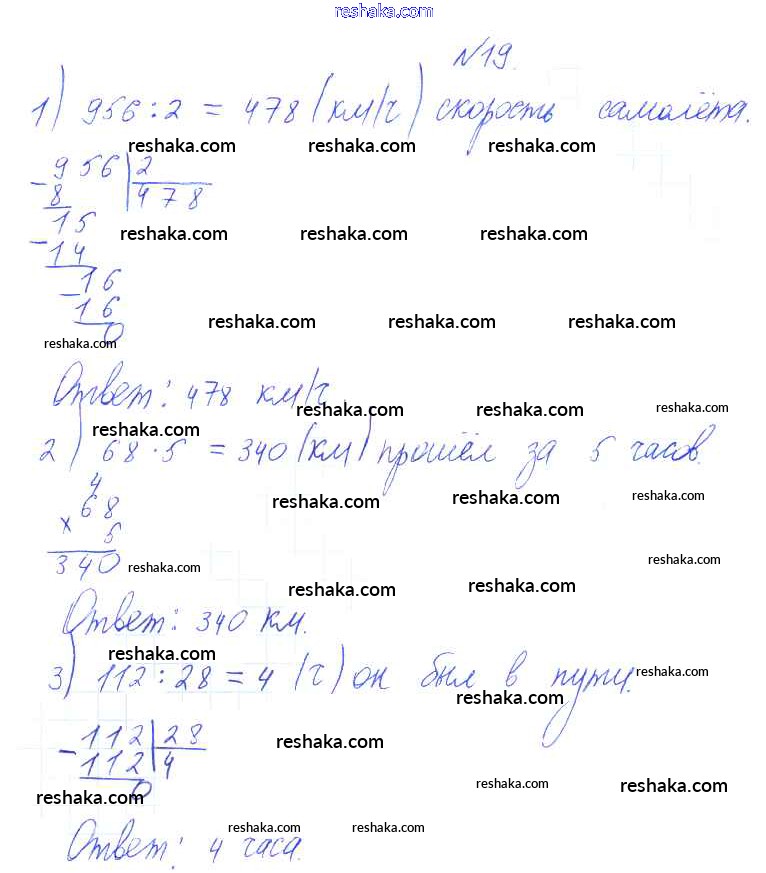 reshaka.com
№19.
1) 956 : 2 = 478 (км/ч) скорость самолёта.
reshaka.com reshaka.com reshaka.com
- 956 | 2
8 478
15
reshaka.com reshaka.com reshaka.com
- 14
- 16
16
reshaka.com reshaka.com reshaka.com
0
reshaka.com
Ответ: 478 км/ч
reshaka.com reshaka.com reshaka.com
reshaka.com
2) 68 · 5 = 340 (км) прошёл за 5 часов.
4
reshaka.com reshaka.com reshaka.com
× 68
5
340
reshaka.com reshaka.com
reshaka.com reshaka.com
Ответ: 340 км.
reshaka.com
3) 112 : 28 = 4 (ч) он был в пути.
reshaka.com
reshaka.com
- 112 | 28
reshaka.com
112 4
0
reshaka.com reshaka.com reshaka.com
reshaka.com reshaka.com
Ответ: 4 часа.